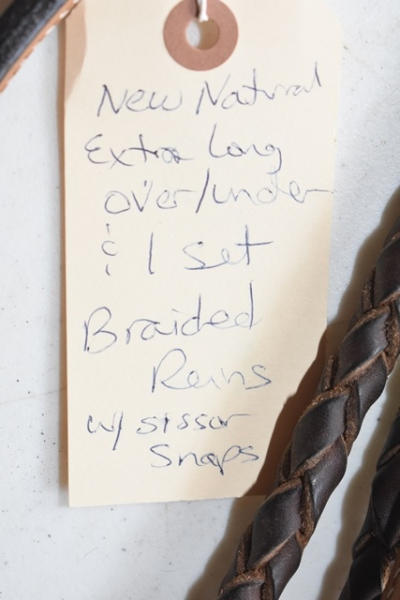 New Natural
Extra Long
over/under
& 1 set
Braided
Reins
w/ sissor
Snaps